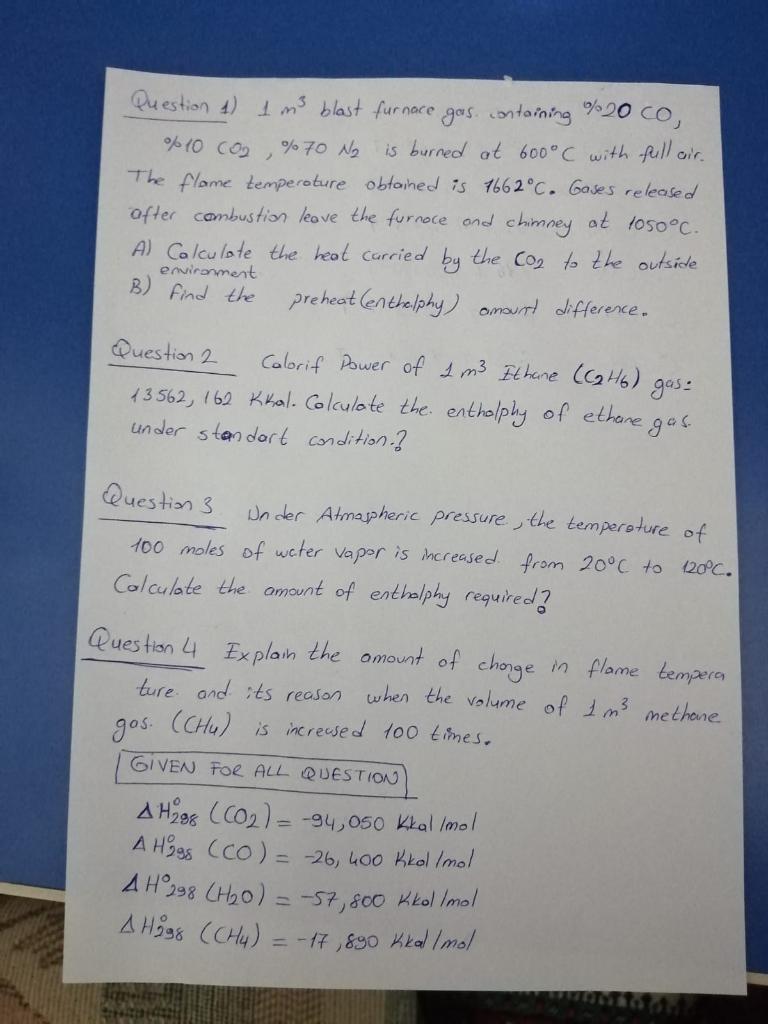 Question 1) 1 m³ blast furnace gas containing %20 CO,
%10 CO2, %70 N2 is burned at 600°C with full air.
The flame temperature obtained is 1662°C. Gases released
after combustion leave the furnace and chimney at 1050°C.
A) Calculate the heat carried by the CO2 to the outside
environment
B) Find the preheat (enthalphy) amount difference.
Question 2 Calorif Power of 1 m³ Ethane (C2H6) gas:
13562,162 Kkal. Calculate the enthalphy of ethane gas
under standart condition.?
Question 3 Under Atmaspheric pressure, the temperature of
100 moles of water vapor is increased from 20°C to 120°C.
Calculate the amount of enthalphy required?
Question 4 Explain the amount of change in flame tempera
ture and its reason when the volume of 1 m³ methane
gas. (CH4) is increased 100 times.
GIVEN FOR ALL QUESTION
ΔH°298 (CO2) = -94,050 Kkal/mol
ΔH°298 (CO) = -26,400 Kkal/mol
ΔH°298 (H2O) = -57,800 Kkal/mol
ΔH°298 (CH4) = -17,890 Kkal/mol